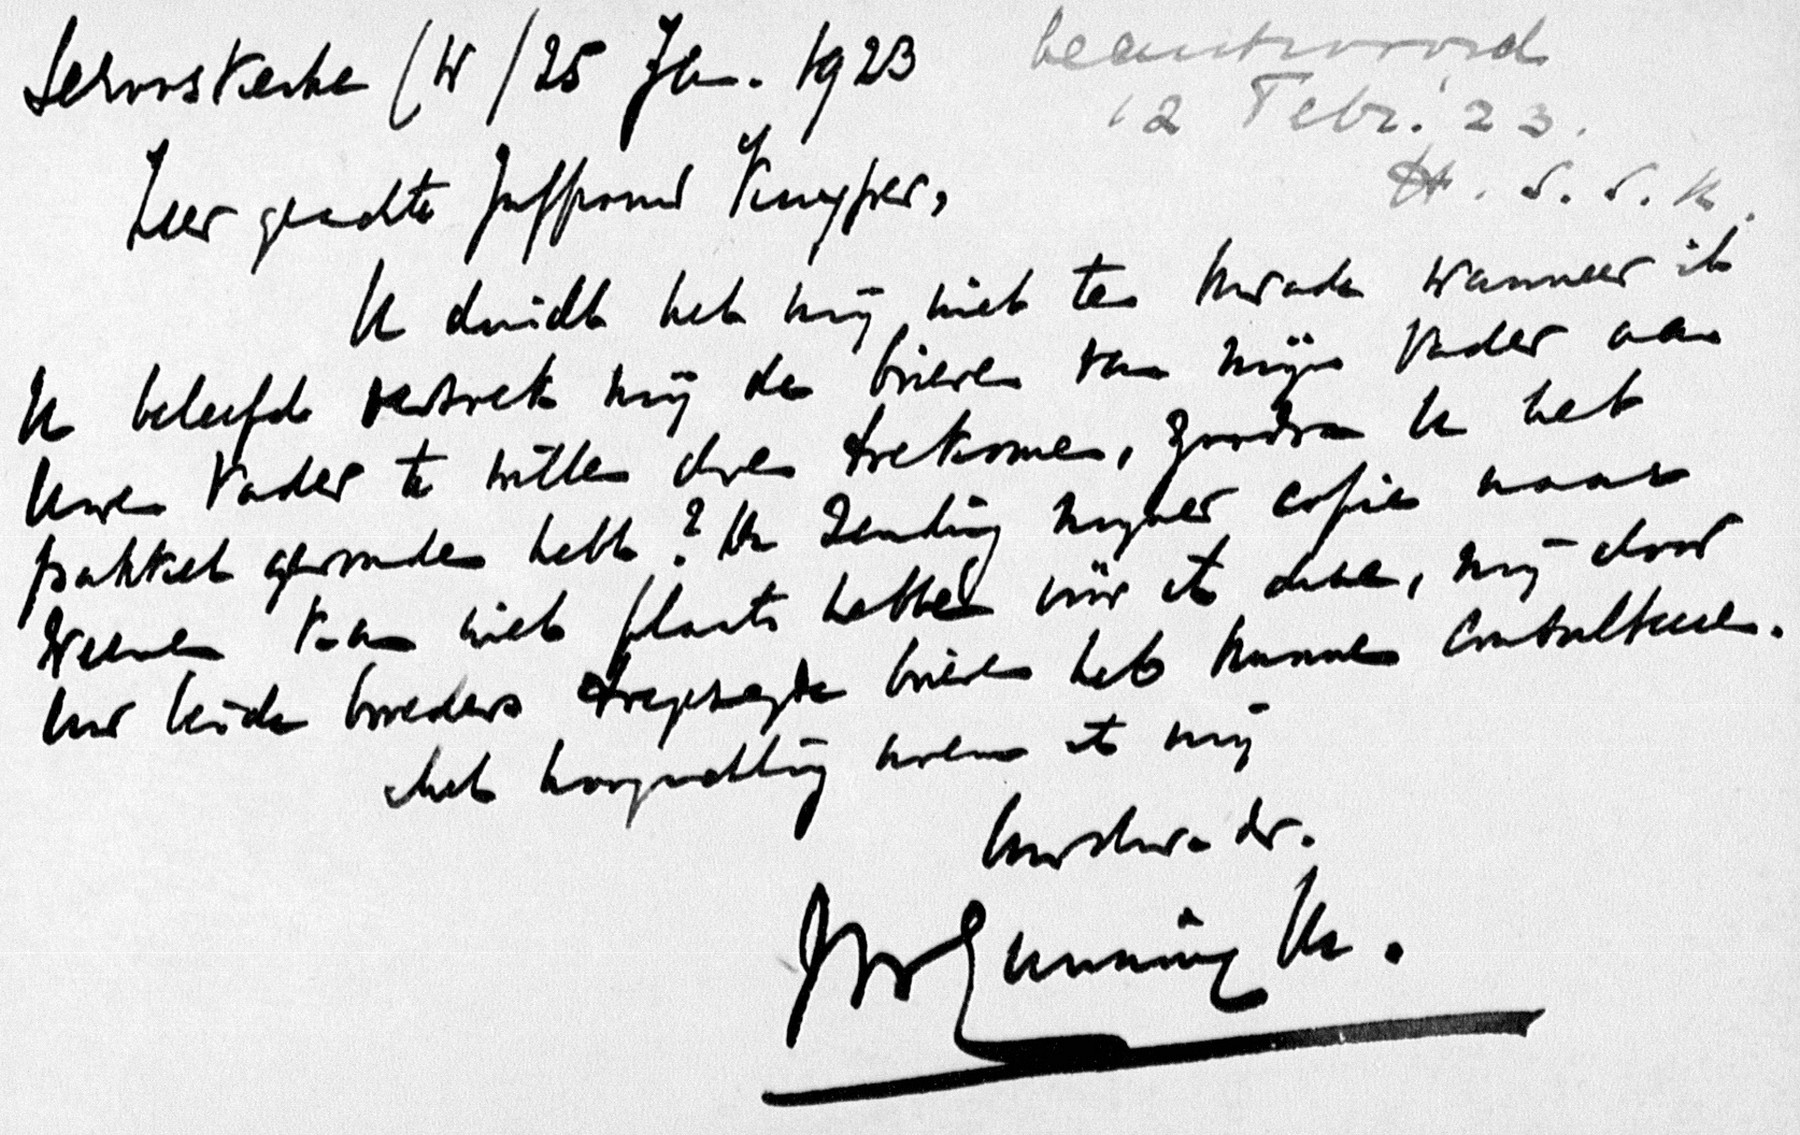 Serooskerke (W) 25 Jan. 1923
beantwoord
12 Febr. '23.
H. S. S. K.
Zeer geachte Juffrouw Kuyper,
U duidt het mij niet ten kwade wanneer ik
U beleefd verzoek mij de brieven van mijn Vader aan
Uwen Vader te willen doen toekomen, zoodra U het
pakket gevonden hebt? De zending mijner copie naar
kan niet plaats hebben vóór ik deze, mij door
Uw beide broeders toegezegde brieven heb kunnen consulteeren.
Met hoogachting noem ik mij
Uw dw. dr.
JHGunning JHz.